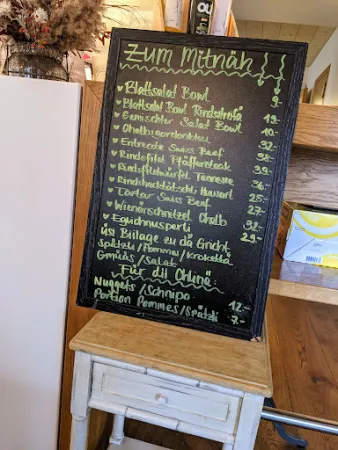 Zum Mitnäh
Blattsalat Bowl 9.-
Blattsalat Bowl Rindsstrofä 19.-
Gemischter Salat Bowl 10.-
Chalbsgordonbleu 32.-
Entrecote Swiss Beef 38.-
Rindsfilet Pfäffersack 39.-
Rindsfiletwürfel 36.-
Rindshacktätschli Husart 25.-
Tartar Swiss Beef 27.-
Wienerschnitzel Chalb 32.-
Eglichnusperli 29.-
üsi Biilage zu dä Gricht
Spätzli/Pommes/Krokettä
Gmüäs/Salat
Für dii Chlinä:
Nuggets/Schnipo 12.-
Portion Pommes/Spätzli 7.-